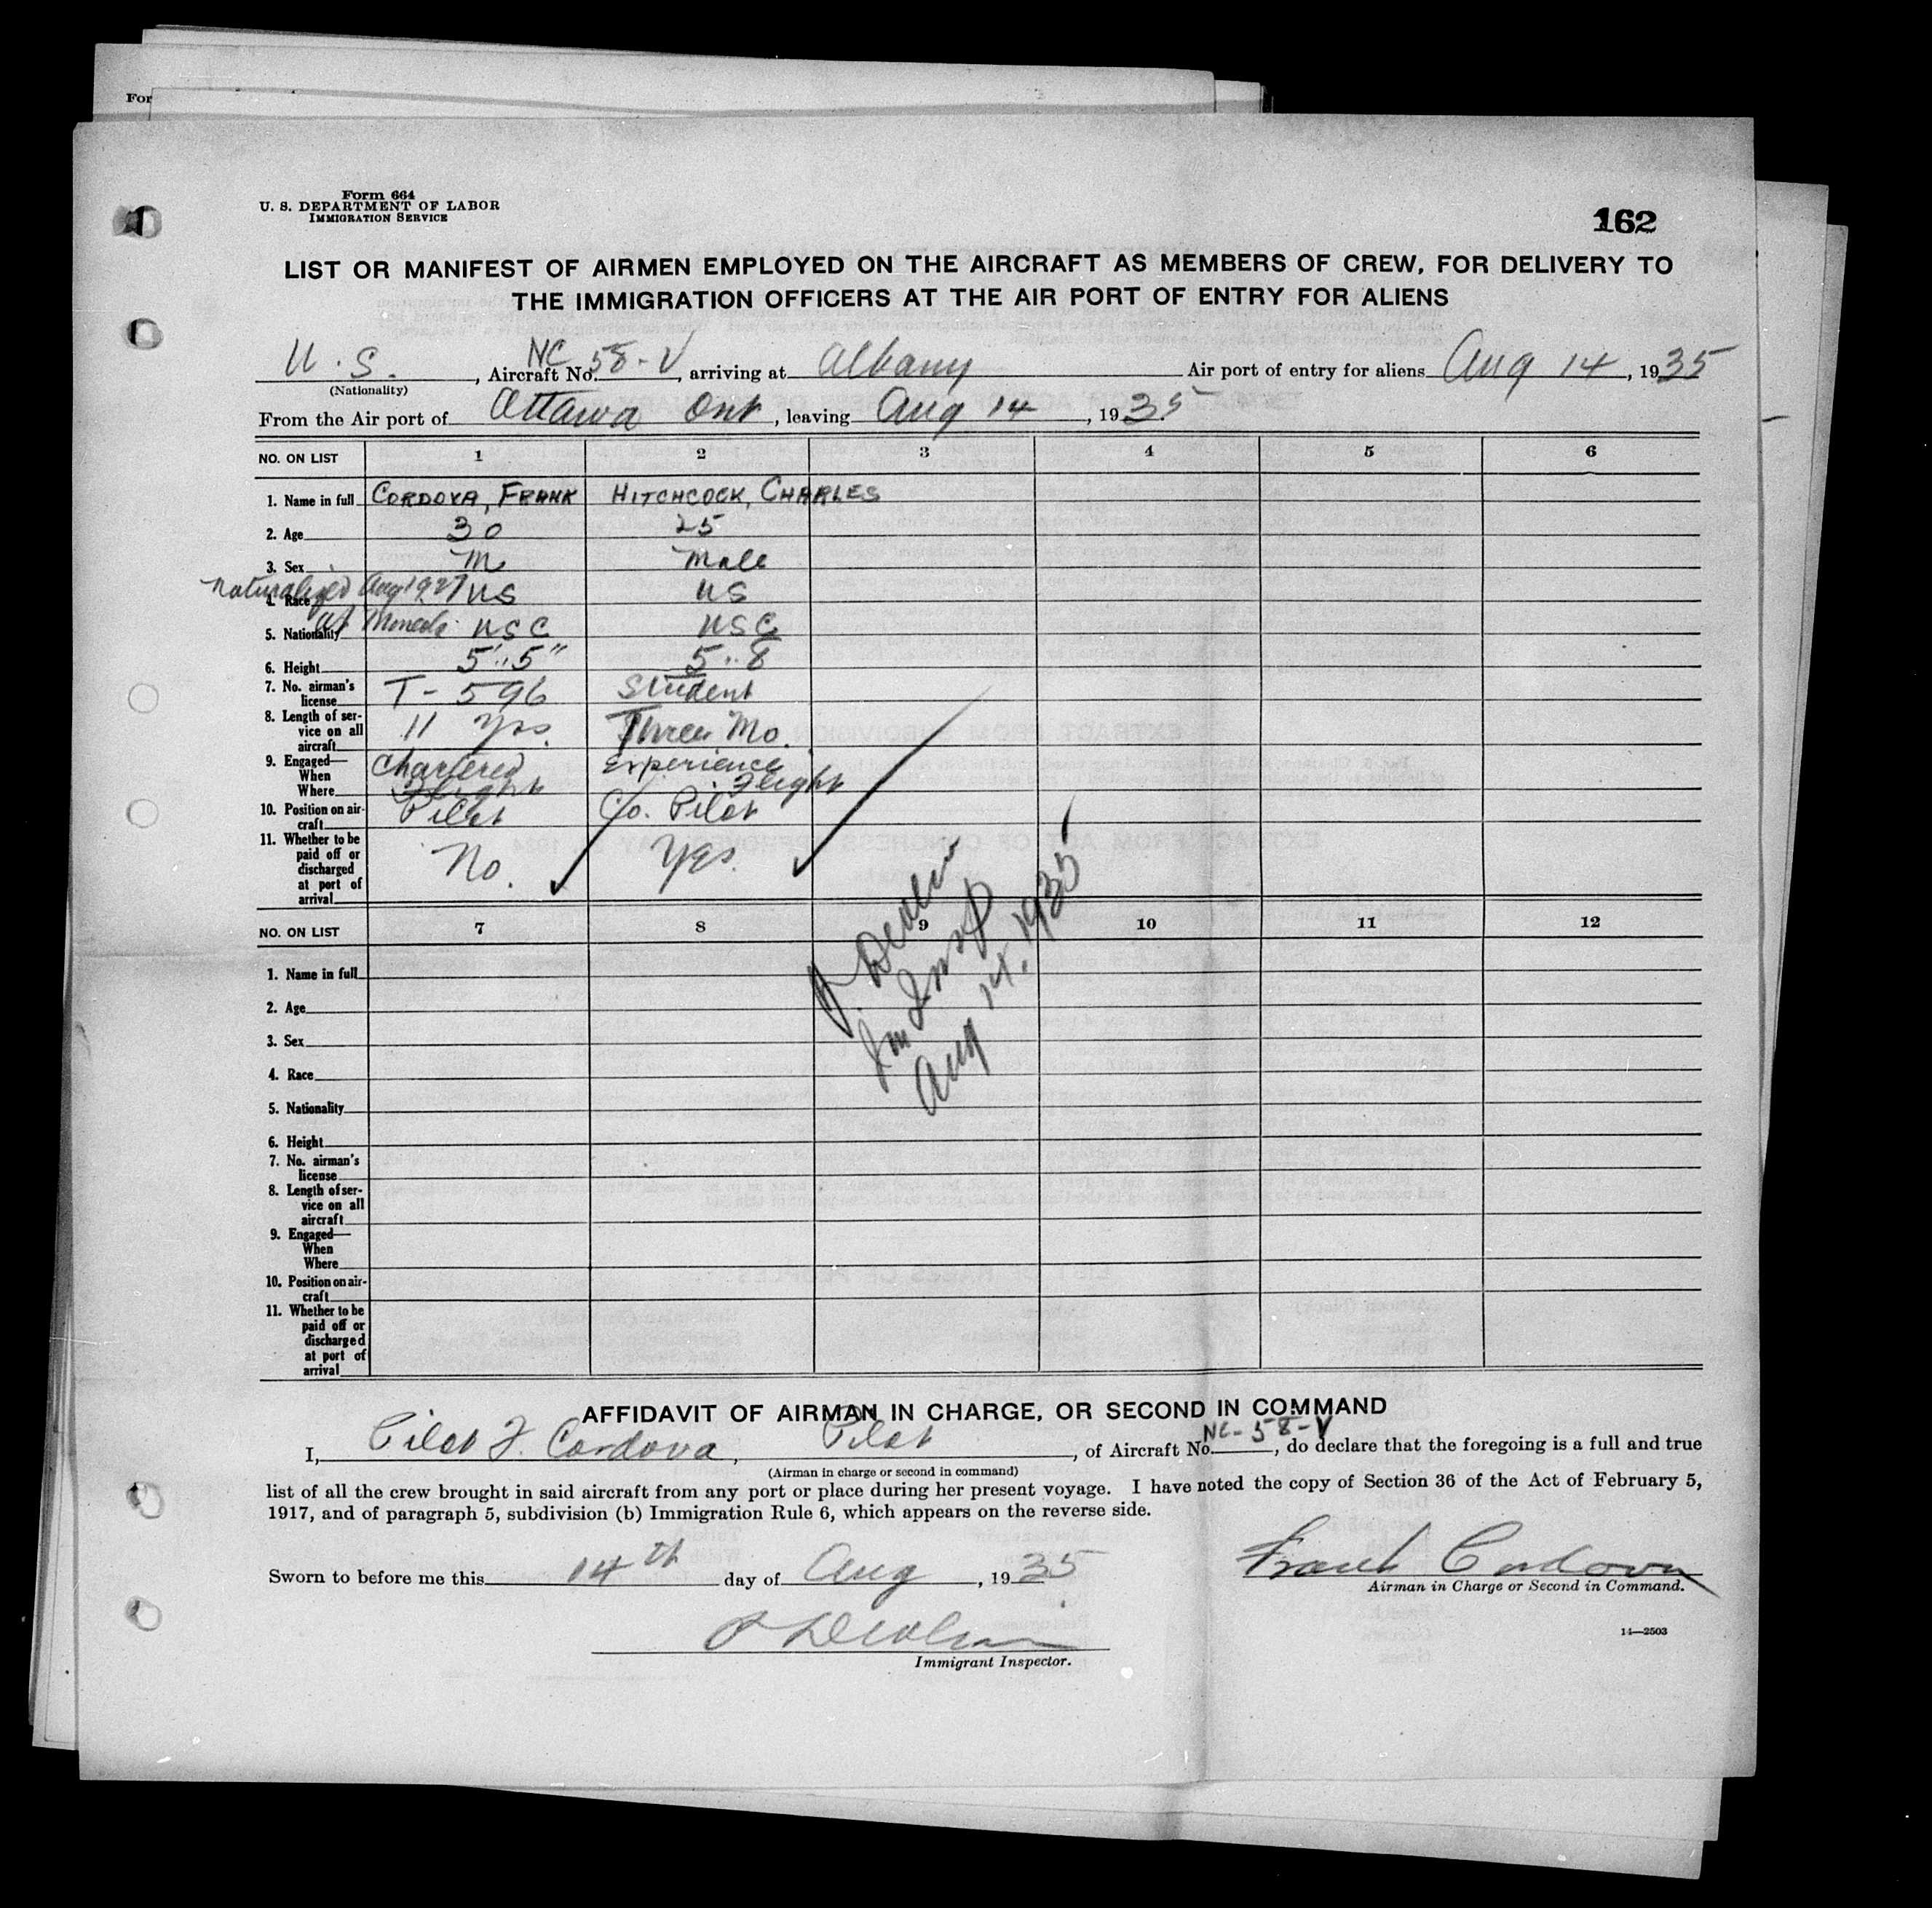 For
Form 664
U. S. DEPARTMENT OF LABOR
IMMIGRATION SERVICE
162
LIST OR MANIFEST OF AIRMEN EMPLOYED ON THE AIRCRAFT AS MEMBERS OF CREW, FOR DELIVERY TO
THE IMMIGRATION OFFICERS AT THE AIR PORT OF ENTRY FOR ALIENS
U. S. , Aircraft No. NC 58-V, arriving at Albany Air port of entry for aliens Aug 14, 1935
(Nationality)
From the Air port of Ottawa Ont, leaving Aug 14, 1935
NO. ON LIST 1 2 3 4 5 6
1. Name in full CORDOVA, FRANK HITCHCOCK, CHARLES
2. Age 30 25
3. Sex M Male
4. Race Naturalized Aug 1927 US US
5. Nationality at USC USC
6. Height 5'..5" 5..8
7. No. airman's license T-596 Student
8. Length of service on all aircraft 11 yrs. Three Mo.
9. Engaged— When Where Chartered Flight Experience Flight
10. Position on aircraft Pilot Co. Pilot
11. Whether to be paid off or discharged at port of arrival No. Yes.
Im Insp
Aug 14, 1935
NO. ON LIST 7 8 9 10 11 12
1. Name in full
2. Age
3. Sex
4. Race
5. Nationality
6. Height
7. No. airman's license
8. Length of service on all aircraft
9. Engaged— When Where
10. Position on aircraft
11. Whether to be paid off or discharged at port of arrival
AFFIDAVIT OF AIRMAN IN CHARGE, OR SECOND IN COMMAND
I, Pilot F. Cordova, Pilot, of Aircraft No. NC-58-V, do declare that the foregoing is a full and true
(Airman in charge or second in command)
list of all the crew brought in said aircraft from any port or place during her present voyage. I have noted the copy of Section 36 of the Act of February 5,
1917, and of paragraph 5, subdivision (b) Immigration Rule 6, which appears on the reverse side.
Sworn to before me this 14th day of Aug, 1935
Frank Cordova
Airman in Charge or Second in Command.
Immigrant Inspector.
14—2503